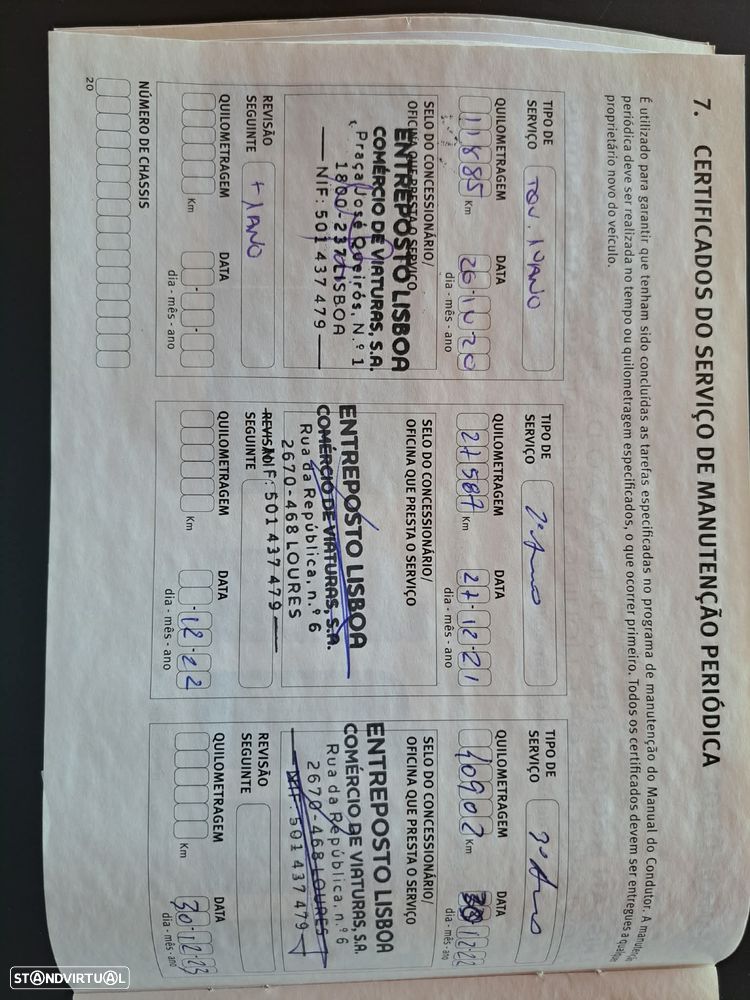 7. CERTIFICADOS DO SERVIÇO DE MANUTENÇÃO PERIÓDICA
É utilizado para garantir que tenham sido concluídas as tarefas especificadas no programa de manutenção do Manual do Condutor. A
periódica deve ser realizada no tempo ou quilometragem especificados, o que ocorrer primeiro. Todos os certificados devem ser entregues a
proprietário novo do veículo.
TIPO DE
SERVIÇO
QUILOMETRAGEM
11885 Km
DATA
dia - mês - ano
SELO DO CONCESSIONÁRIO/
OFICINA QUE PRESTA O SERVIÇO
ENTREPOSTO LISBOA
COMÉRCIO DE VIATURAS, S.A.
Praça José Queirós, N.º 1
1800-237 LISBOA
NIF: 501 437 479
REVISÃO
SEGUINTE
+ 1 ANO
QUILOMETRAGEM
Km
DATA
dia - mês - ano
NÚMERO DE CHASSIS
20
TIPO DE
SERVIÇO
2º Ano
QUILOMETRAGEM
27587 Km
DATA
27-12-21
dia - mês - ano
SELO DO CONCESSIONÁRIO/
OFICINA QUE PRESTA O SERVIÇO
ENTREPOSTO LISBOA
COMÉRCIO DE VIATURAS, S.A.
Rua da República, n.º 6
2670-468 LOURES
NIF: 501 437 479
REVISÃO
SEGUINTE
QUILOMETRAGEM
Km
DATA
12-22
dia - mês - ano
TIPO DE
SERVIÇO
3º Ano
QUILOMETRAGEM
40902 Km
DATA
30-12-22
dia - mês - ano
SELO DO CONCESSIONÁRIO/
OFICINA QUE PRESTA O SERVIÇO
ENTREPOSTO LISBOA
COMÉRCIO DE VIATURAS, S.A.
Rua da República, n.º 6
2670-468 LOURES
NIF: 501 437 479
REVISÃO
SEGUINTE
QUILOMETRAGEM
Km
DATA
30-12-23
dia - mês - ano
STANDVIRTUAL